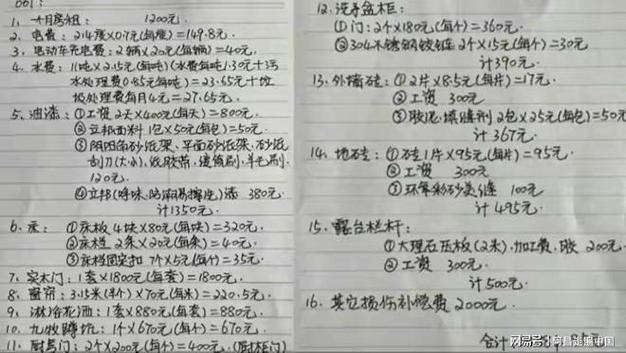 1. 十月房租: 1200元.
2. 电费: 214度×0.7元(每度)=149.8元.
3. 电动车充电费: 2辆×20元(每辆)=40元.
4. 水费: 11吨×2.15元(每吨)(水费每吨1.30元+污
水处理费0.85元每吨)=23.65元+垃
圾处理费每月4元=27.65元.
5. 油漆: ①工资2天×400元(每天)=800元.
②立邦面料1包×50元(每包)=50元.
③阴阳角砂纸架、平面砂纸架、砂纸
刮刀(大小),纸胶带,
120元.
380元.
计1350元.
6. 床: ①床板4块×80元(每块)=320元.
②床梃2条×20元(每条)=40元.
③床梃固实扣7个×5元(每个)=35元.
7. 实木门: 1套×1800元(每套)=1800元.
8. 窗帘: 3.15米(半个)×70元(每米)=220.5元.
9. 淋浴花洒: 1套×880元(每套)=880元.
10. 九牧蹲坑: 1个×670元(每个)=670元.
11. 厨房门: 2个×200元(每个)=400元.(厨柜门)
12. 洗手盆柜:
①门: 2个×180元(每个)=360元.
②304不锈钢铰链2个×15元(每个)=30元
计390元.
13. 外墙砖: ①2片×8.5元(每片)=17元.
②工资 300元
③胶泥、填缝剂2包×25元(每包)=50元
计367元.
14. 地砖: ①砖1片×95元(每片)=95元.
②工资 300元.
③环氧彩砂美缝 100元
计495元.
15. 露台栏杆:
①大理石压板(2米),加工费、胶 200元.
②工资 300元.
计500元.
16. 其它损伤补偿费2000元.
合计
网易号|阿昌走遍中国